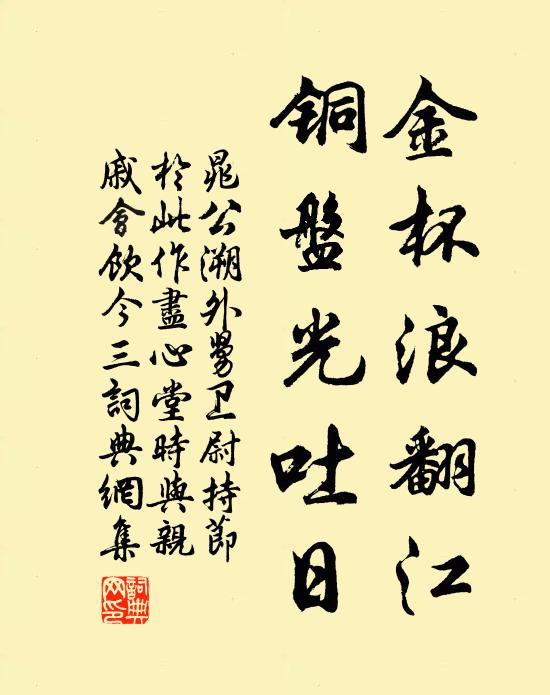 金杯浪翻江
铜盤光吐日
晁公溯外舅卫尉持節
於此作盡心堂時與親
戚會飲今三詞典網集
詞典网印